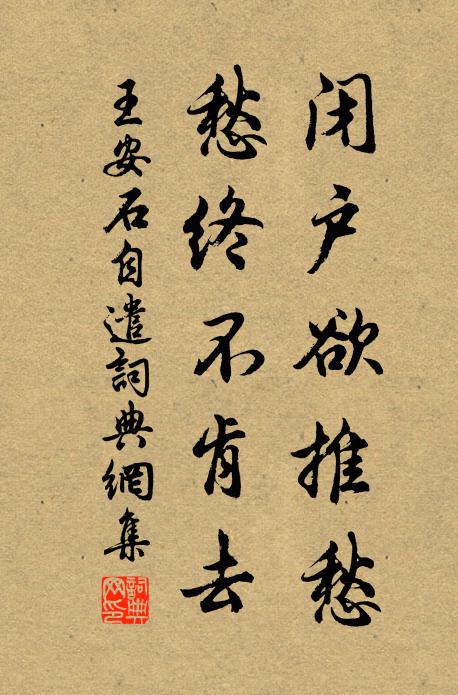 闭户欲推愁
愁终不肯去
王安石自遣詞典網集
詞典網印